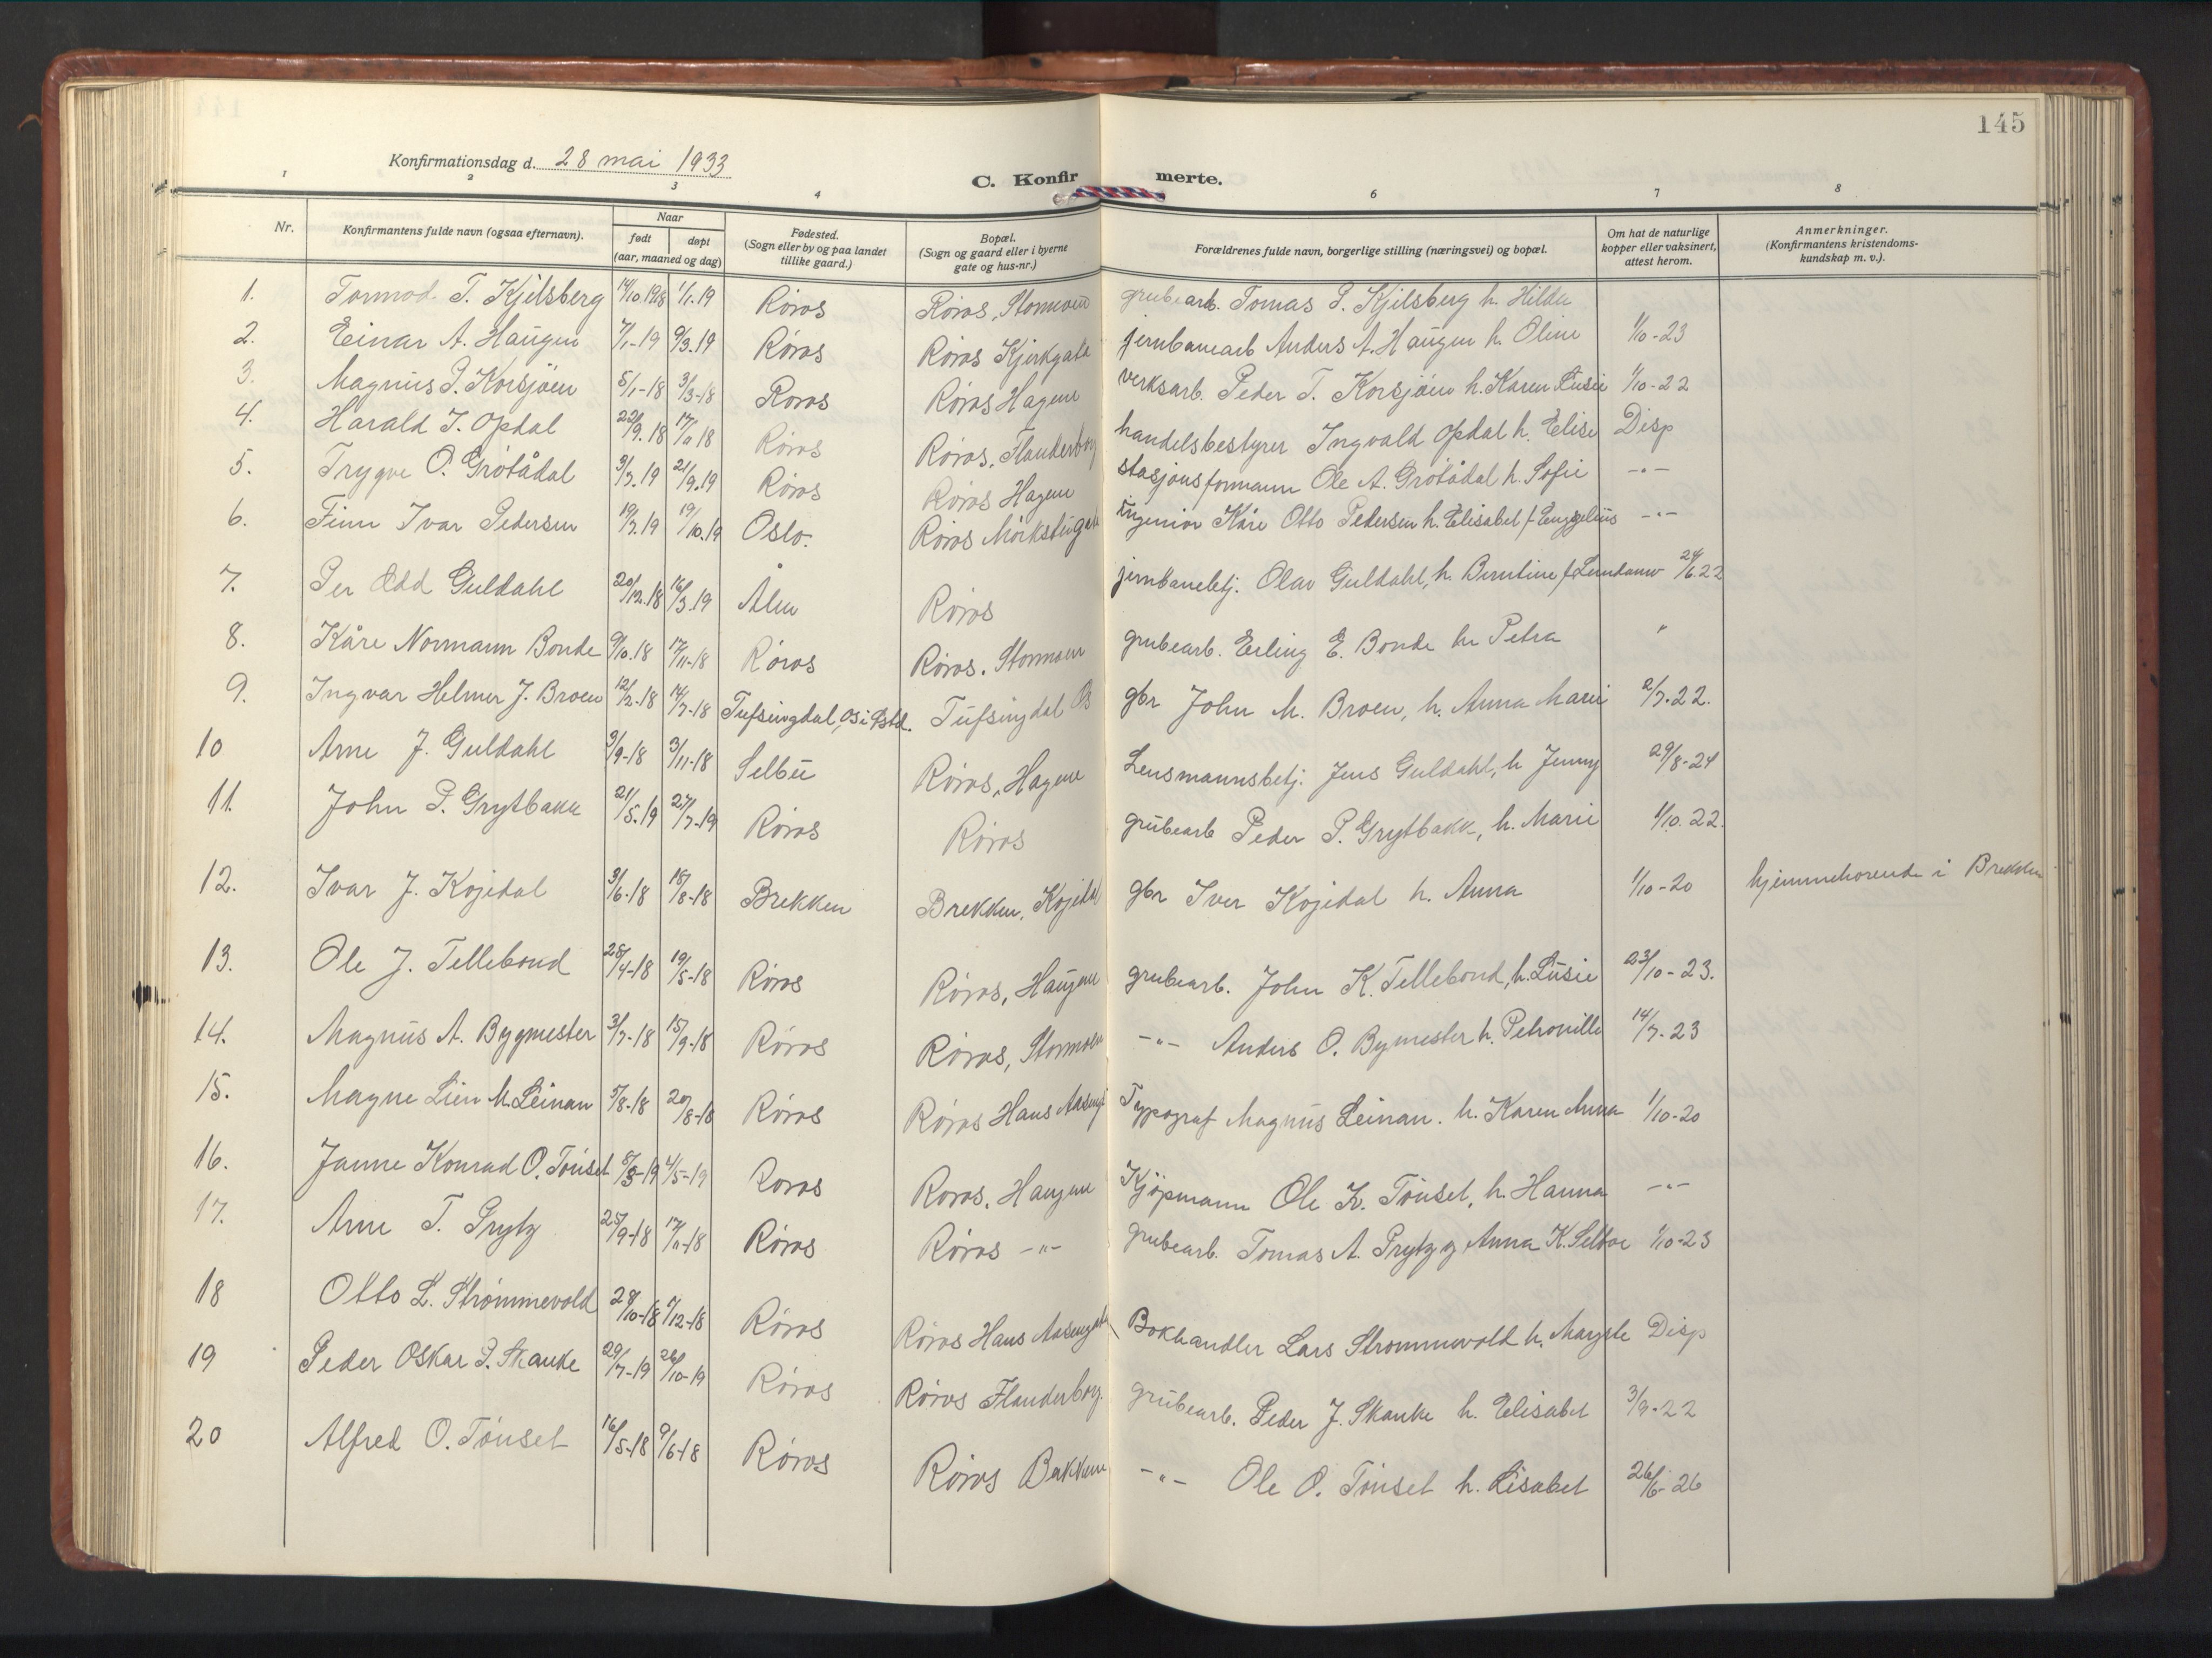 145
Konfirmationsdag d. 28 mai 1933
C. Konfirmerte.
1 2 3 4 6 7 8
Nr. Konfirmantens fulde navn (ogsaa efternavn). Naar født døpt (aar, maaned og dag) Fødested. (Sogn eller by og paa landet tillike gaard.) Bopæl. (Sogn og gaard eller i byerne gate og hus-nr.) Forældrenes fulde navn, borgerlige stilling (næringsvei) og bopæl. Om hat de naturlige kopper eller vaksinert, attest herom. Anmerkninger. (Konfirmantens kristendomskundskap m. v.).
1. Tormod T. Kjelsberg 14/10.1918 1/1.19 Røros Røros, Stormoen grubearb. Tomas P. Kjelsberg h. Hilda
2. Einar A. Haugen 7/1-19 9/3.19 Røros Røros Kjerkgata jernbanearb Anders A. Haugen h. Oline 1/10-23
3. Magnus P. Korsjøen 5/1-18 3/3-18 Røros Røros Hagene verksarb. Peder T. Korsjøen h. Karen Lusie 1/10-22
4. Harald I. Opdal 22/9.18 17/11 18 Røros Røros, Flanderborg handelsbestyrer Ingvald Opdal h. Elise Disp
5. Trygve O. Grötådal 3/7.19 21/9.19 Røros Røros Hagene stasjonsformann Ole A. Grötådal h. Sofie -"-
6. Finn Ivar Pedersen 19/7.19 19/10.19 Oslo. Røros Mörkstugata Ingeniør Kåre Otto Pedersen h. Elisabet f. -"-
7. Per Odd Guldahl 20/12.18 16/3.19 Ålen Røros jernbanebetj. Olav Guldahl, h. Berntine f. 24/6.22
8. Kåre Normann Bonde 9/10.18 17/11-18 Røros Røros. Stormoen grubearb. Erling E. Bonde h. Petra "
9. Ingvar Helmer J. Broen 12/2-18 14/7-18 Tufsingdal, Os i Østd. Tufsingdal Os gbr John M. Broen, h. Anna Marie 2/7.22.
10 Arne J. Guldahl 3/9-18 3/11-18 Selbu Røros, Hagene Lensmannsbetj. Jens Guldahl, h Jenny 29/8-24
11. John P. Grytbakk 21/5.19 27/7-19 Røros Røros grubearb Peder P. Grytbakk, h. Marie 1/10.22.
12. Ivar J. Kojedal 3/6-18 18/8-18 Brekken Brekken, Kojedal gbr Iver Kojedal h. Anna 1/10-20 hjemmehørende i Brekken
13. Ole J. Tellebond 28/4-18 19/5-18 Røros Røros, Haugene grubearb. John K. Tellebond, h. Lusie 23/10-23.
14. Magnus A. Bygmester 3/7-18 15/9-18 Røros Røros, Stormoen -"- Anders O. Bymester h. Petronille 14/7-23
15. Magne Lien M. Leinan 5/8-18 20/8-18 Røros Røros Hans Aasengt Typograf Magnus Leinan. h. Karen Anna 1/10-20
16. Janne Konrad O. Tönset 8/3-19 4/5-19 Røros Røros. Haugene Kjøpmann Ole K. Tönset, h. Hanna -"-
17. Arne T. Prytz 25/9-18 17/11-18 Røros Røros -"- grubearb. Tomas A. Prytz og Anna K. Selboe 1/10-23
18 Otto L. Strømmevold 28/10-18 /12-18 Røros Røros Hans Aasengata Bokhandler Lars Strømmevold h. Margte Disp
19 Peder Oskar P. Skanke 29/7-19 26/10-19 Røros Røros Flanderborg. grubearb. Peder J. Skanke h. Elisabet 3/9-22
20 Alfred O. Tönset 16/5-18 9/6-18 Røros Røros Bakkene -"- Ole O. Tönset h. Lisabet 26/6-26